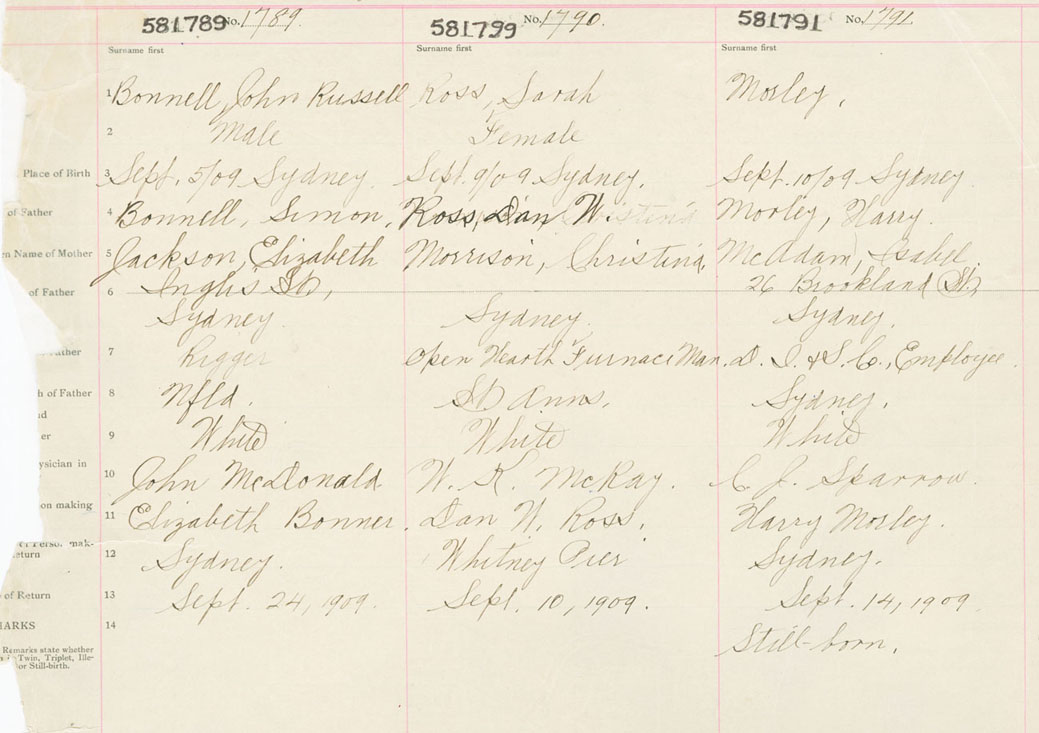 581789 No. 1789. 581799 No. 1790. 581791 No. 1791.
Surname first Surname first Surname first
1 Bonnell, John Russell Ross, Sarah Mosley,
2 Male Female
Place of Birth 3 Sept. 5/09 Sydney. Sept. 9/09 Sydney. Sept. 10/09 Sydney
of Father 4 Bonnell, Simon, Ross, Dan W. Morley, Harry.
en Name of Mother 5 Jackson, Elizabeth Morrison, Christina, McAdam, Isabel.
Inglis St, 26 Brookland St,
of Father 6
Sydney. Sydney. Sydney.
ather 7 Rigger Open Hearth Furnace Man. D. I. & S. C., Employee.
h of Father 8 Nfld. St Anns. Sydney.
nd
er 9 White White White
ysician in
10 John McDonald W. K. McKay. C J. Sparrow.
on making
11 Elizabeth Bonner. Dan W. Ross. Harry Mosley.
Person mak-
eturn 12 Sydney. Whitney Pier Sydney.
of Return 13 Sept. 24, 1909. Sept. 10, 1909. Sept. 14, 1909
ARKS 14
Still-born.
Remarks state whether
Twin, Triplet, Ille-
or Still-birth.